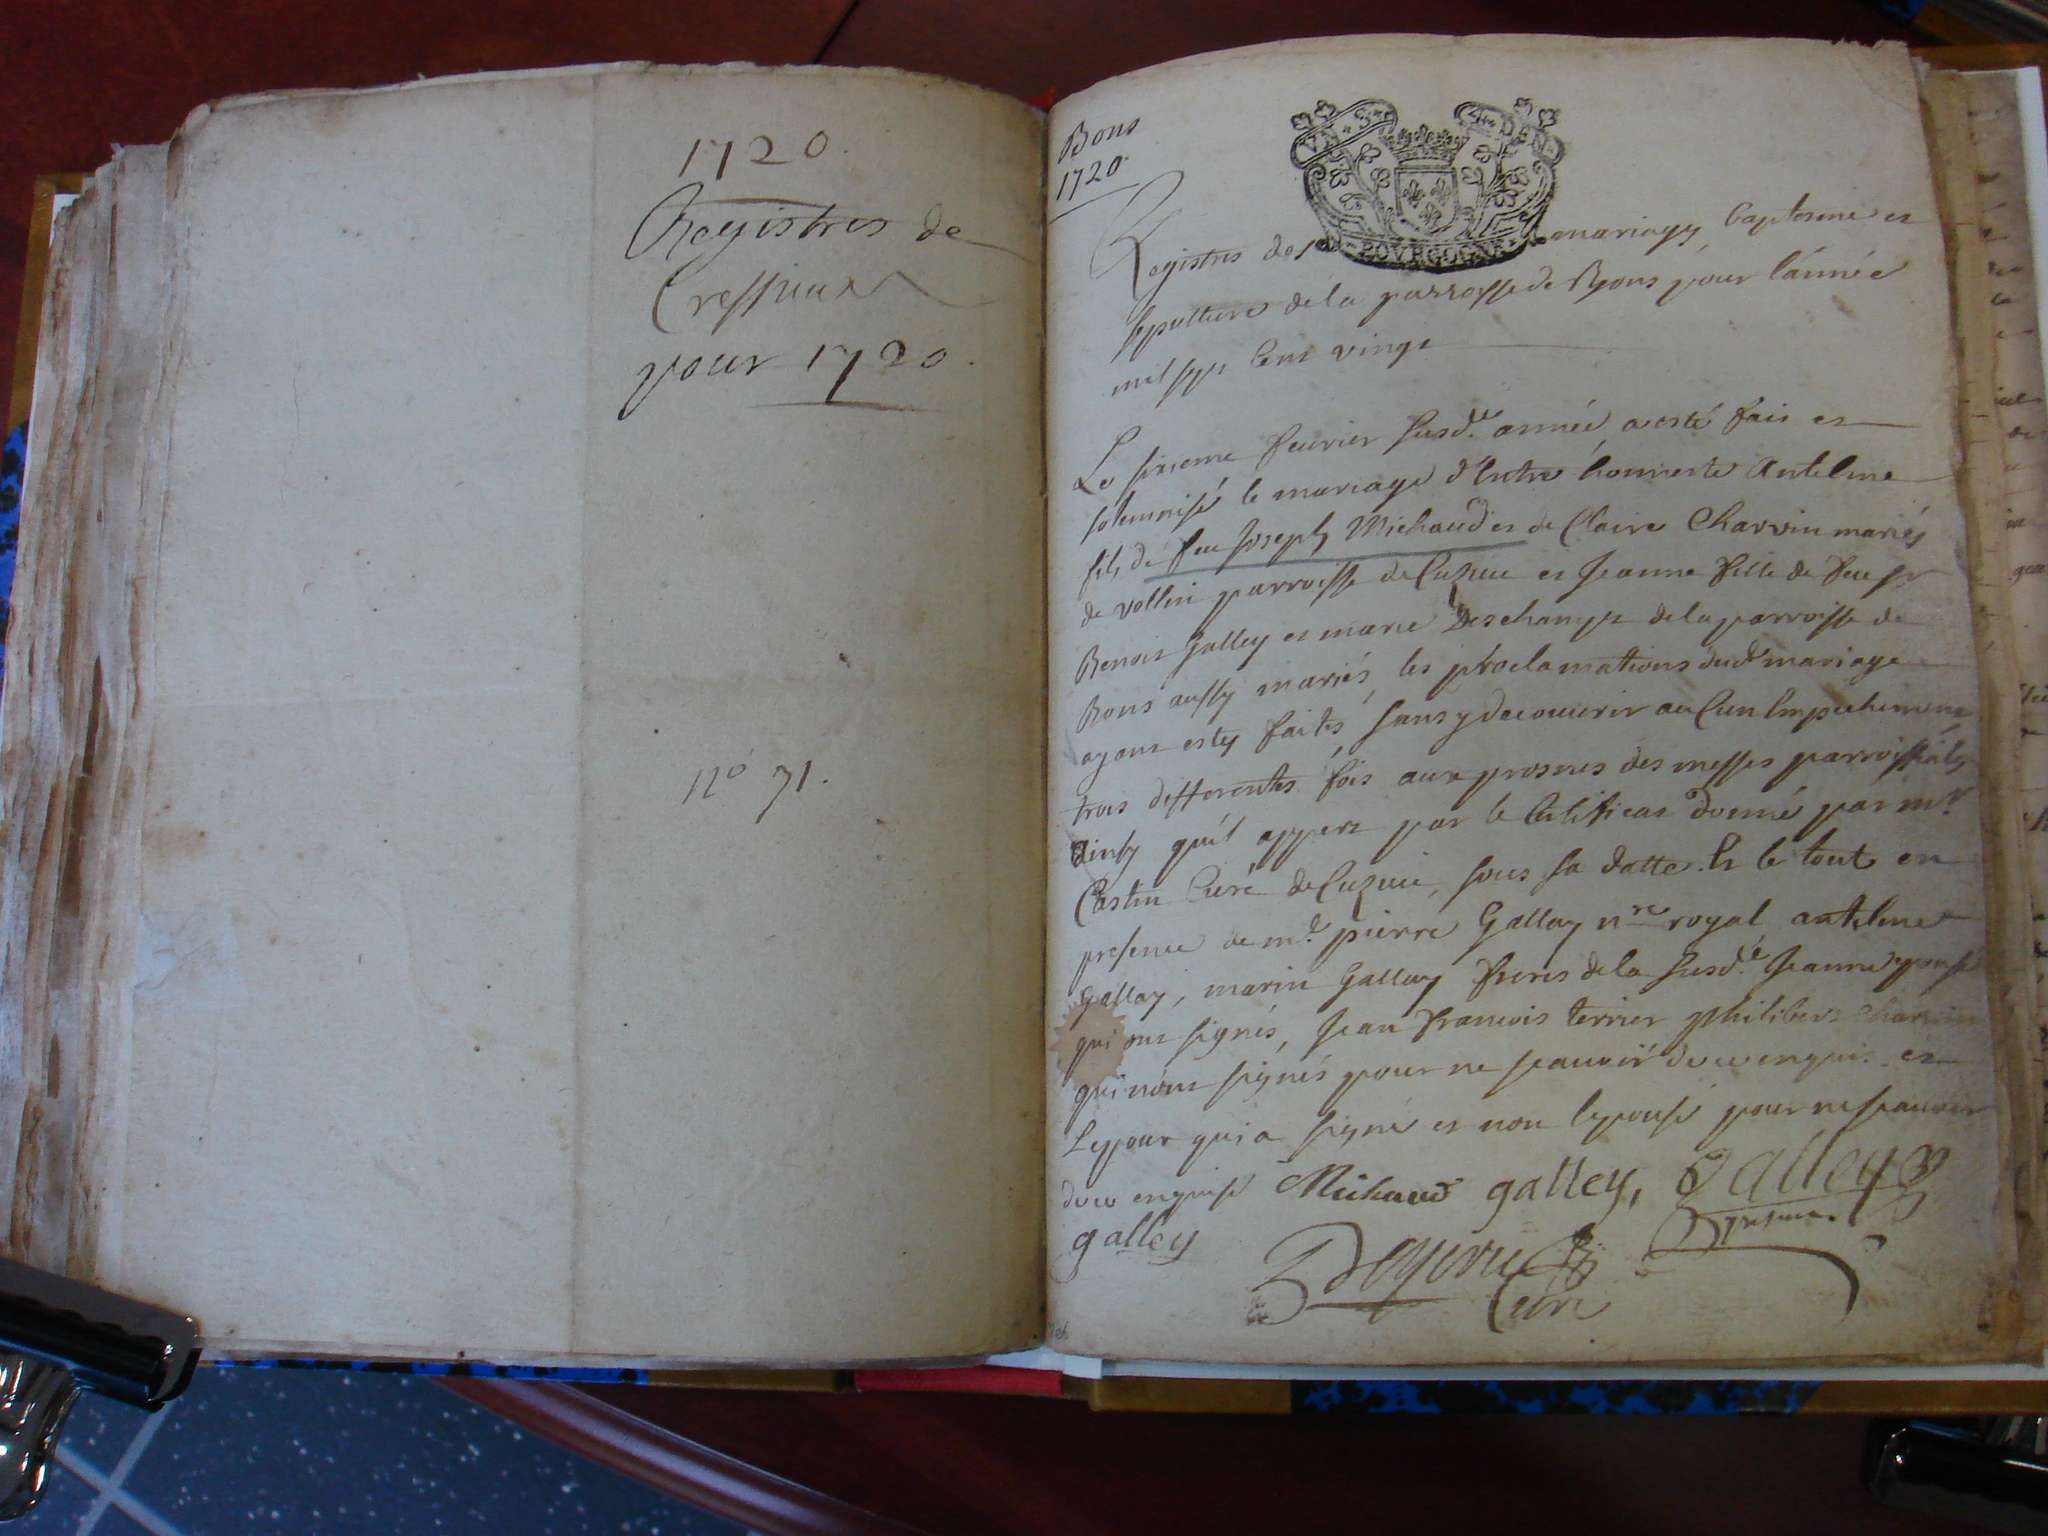 1720.
Registres de
Cressieux
pour 1720.
n° 71.
Bons
1720.
BOURGOGNE
Registres des mariages baptesme et
sepulture de la parroisse de Bons pour l'année
mil sept cent vingt
Le sixieme feuvrier susd.e année a esté fait et
solemnisé le mariage d'Entre honneste Antelme
fils de feu Joseph Michaud et de Claire Charvin mariés
de vollin parroisse de Cuzieu et Jeanne fille de feu Sr
Benoit Galley et marie Deschamps de la parroisse de
Bons aussy mariés, les proclamations dud mariage
ayant estés faites, sans y decouvrir aucun Empechement
trois differentes fois aux prosnes des messes parroissiales
ainsy qu'il appert par le Certificat donné par mr
Castin Curé de Cuzieu, sous sa datte. Et le tout en
presence de me pierre Gallay nre royal antelme
Gallay, marin Gallay freres de la susd.e Jeanne epouse
qui ont signés, Jean francois terrier philibert Charvin
qui n'ont signés pour ne scauvoir de ce enquis et
L'epoux qui a signé et non l'epouse pour ne scauvoir
de ce enquise Michaud galley, Galley
galley
Curé